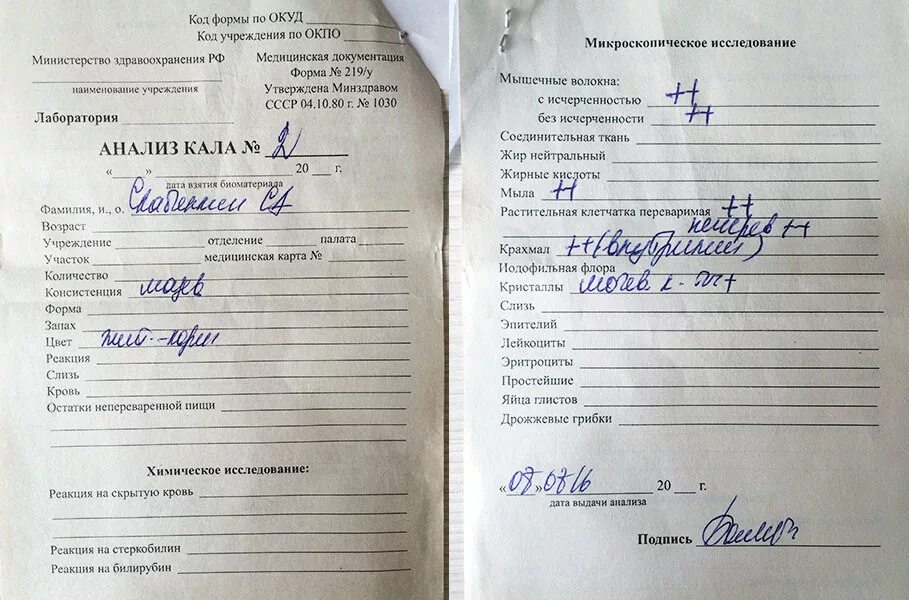 Код формы по ОКУД
Код учреждения по ОКПО
Министерство здравоохранения РФ
наименование учреждения
Медицинская документация
Форма № 219/у
Утверждена Минздравом
СССР 04.10.80 г. № 1030
Лаборатория
АНАЛИЗ КАЛА № 2
« » 20 г.
дата взятия биоматериала
Фамилия, и., о.
Возраст
Учреждение отделение палата
Участок медицинская карта №
Количество
Консистенция мазев
Форма
Запах
Цвет жит-корич
Реакция
Слизь
Кровь
Остатки непереваренной пищи
Химическое исследование:
Реакция на скрытую кровь
Реакция на стеркобилин
Реакция на билирубин
Микроскопическое исследование
Мышечные волокна:
с исчерченностью ++
без исчерченности ++
Соединительная ткань
Жир нейтральный
Жирные кислоты
Мыла ++
Растительная клетчатка переваримая ++
неперев ++
Крахмал ++
Иодофильная флора
Кристаллы мочев. к-ты +
Слизь
Эпителий
Лейкоциты
Эритроциты
Простейшие
Яйца глистов
Дрожжевые грибки
«07» 0816 20 г.
дата выдачи анализа
Подпись